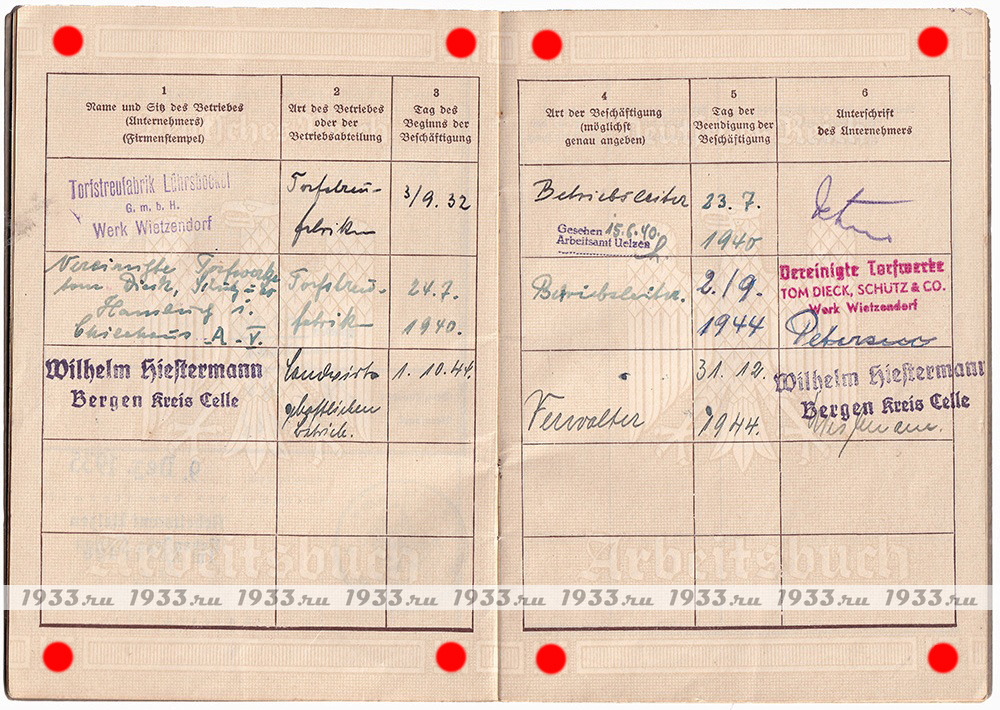 1
Name und Sitz des Betriebes
(Unternehmers)
(Firmenstempel)
2
Art des Betriebes
oder der
Betriebsabteilung
3
Tag des
Beginns der
Beschäftigung
4
Art der Beschäftigung
(möglichst
genau angeben)
5
Tag der
Beendigung der
Beschäftigung
6
Unterschrift
des Unternehmers
Torfstreufabrik Lührsbockel
G. m. b. H.
Werk Wietzendorf
Torfstreu-
fabrik
3/9. 32
Betriebsleiter
Gesehen 15.6.40.
Arbeitsamt Uelzen
23. 7.
1940
Vereinigte Torfwerke
tom Dieck, Schütz & Co
Hamburg 1.
Chilehaus A. V.
Torfstreu-
fabrik
24.7.
1940.
Betriebsleiter.
2./9.
1944
Vereinigte Torfwerke
TOM DIECK, SCHÜTZ & CO.
Werk Wietzendorf
Petersen
Wilhelm Hiestermann
Bergen Kreis Celle
Landwirt-
schaftlichen
Betrieb.
1. 10.44.
Verwalter
31. 12.
1944.
Wilhelm Hiestermann
Bergen Kreis Celle
Arbeitsbuch
Arbeitsbuch
1933.ru 1933.ru 1933.ru 1933.ru 1933.ru 1933.ru 1933.ru 1933.ru 1933.ru